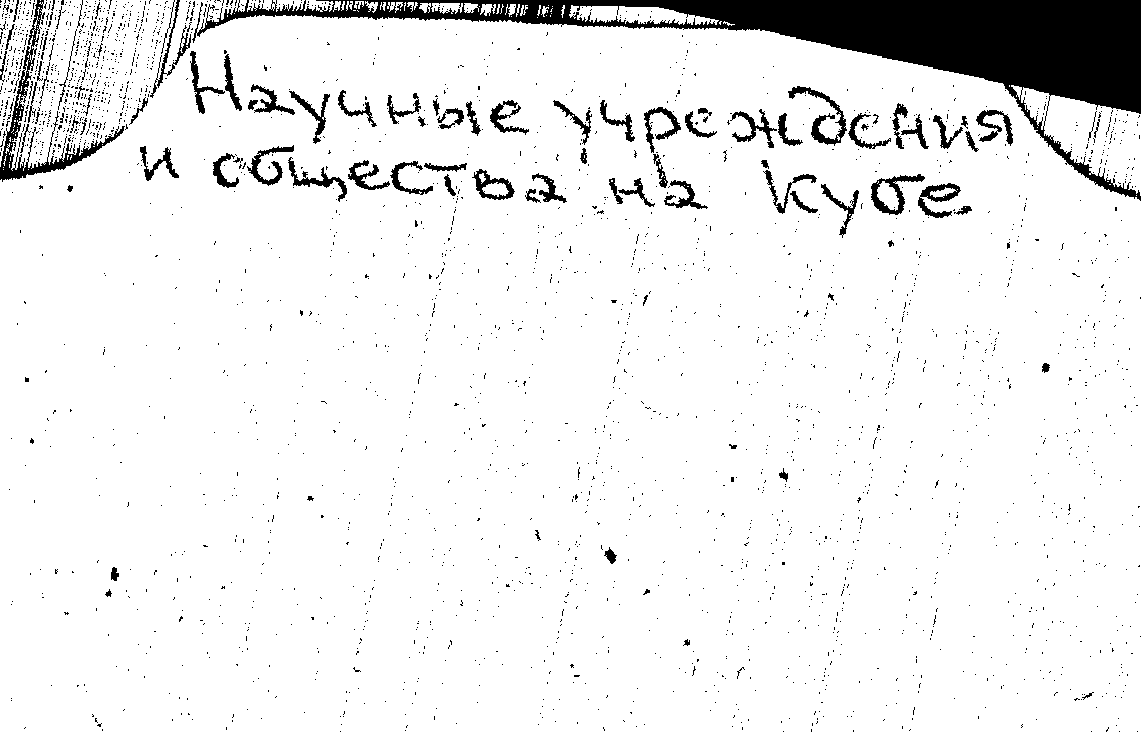 Научные учреждения
и общества на Кубе